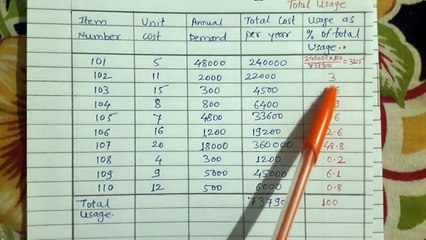 Total Usage
Item Number Unit Cost Annual Demand Total Cost per year Usage as % of total Usage..
101 5 48000 240000 240000×100 = 32.5
102 11 2000 22000 3
103 15 300 4500
104 8 800 6400
105 7 4800 33600
106 16 1200 19200 2.6
107 20 18000 360000 48.8
108 4 300 1200 0.2
109 9 5000 45000 6.1
110 12 500 6000 0.8
Total Usage. 73790 100